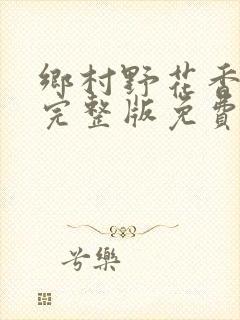 鄉村野花香
完整版免費
兮樂